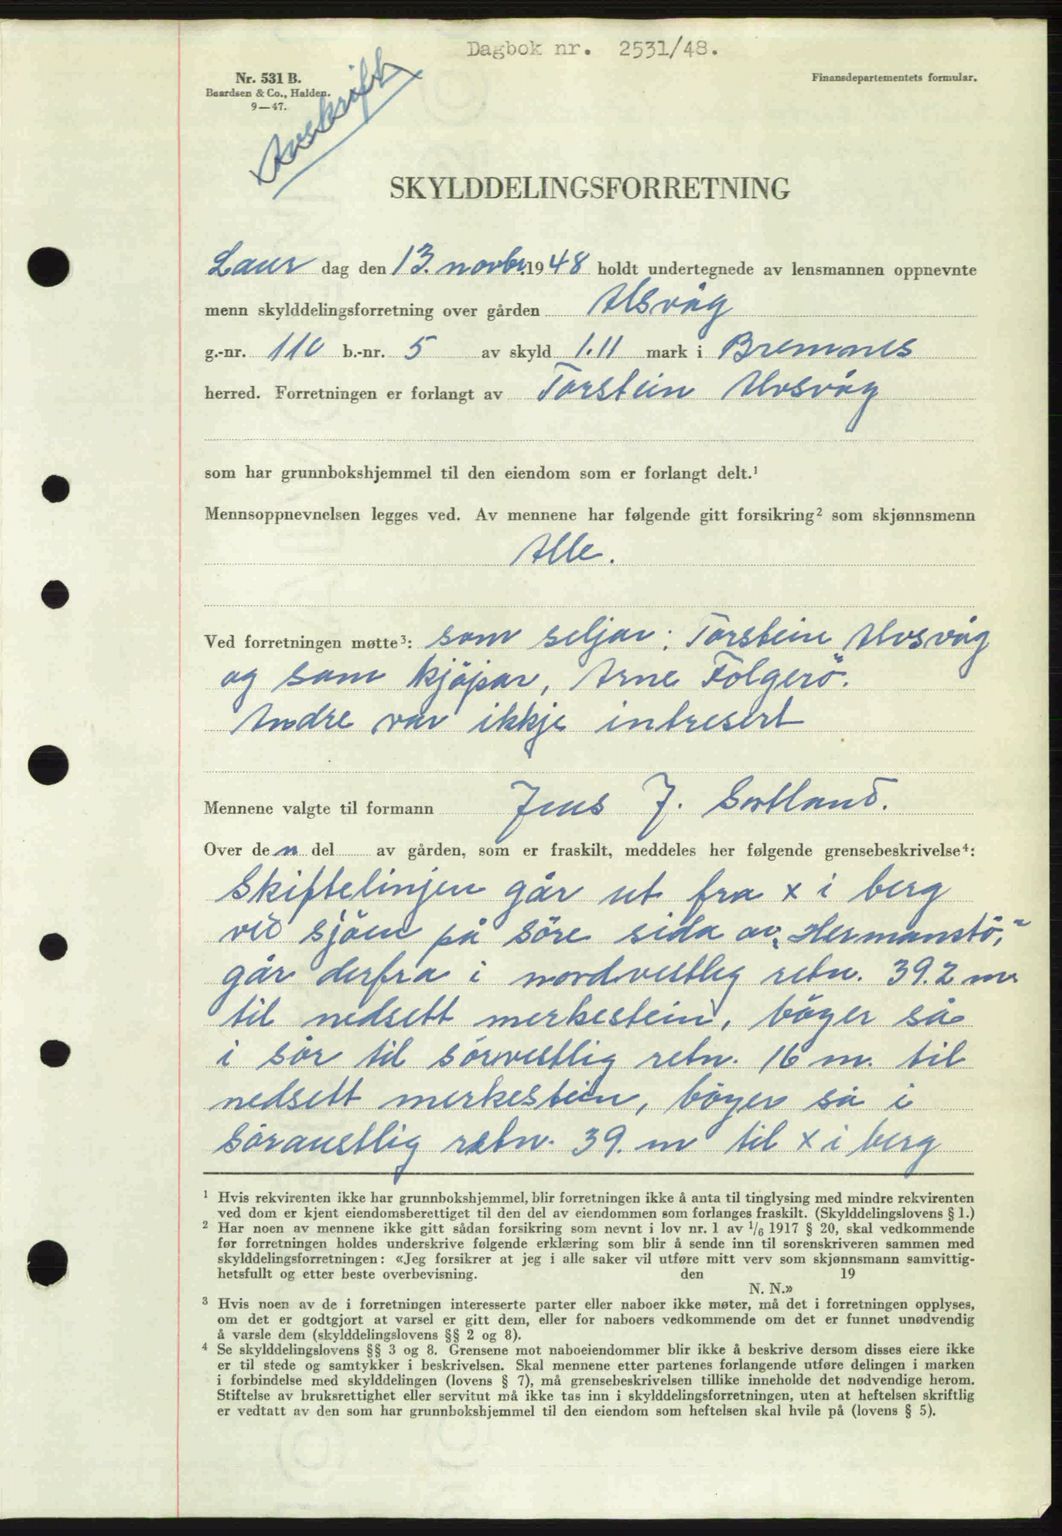 Dagbok nr. 2531/48.
Nr. 531 B.
Baardsen & Co., Halden.
9—47.
Finansdepartementets formular.
Avskrift
SKYLDDELINGSFORRETNING
Laur dag den 13. novbr. 1948 holdt undertegnede av lensmannen oppnevnte
menn skylddelingsforretning over gården Alsvåg
g.-nr. 110 b.-nr. 5 av skyld 1.11 mark i Bremnes
herred. Forretningen er forlangt av Torstein Alvsvåg
som har grunnbokshjemmel til den eiendom som er forlangt delt.¹
Mennsoppnevnelsen legges ved. Av mennene har følgende gitt forsikring² som skjønnsmenn
Alle.
Ved forretningen møtte³: som seljar: Torstein Alvsvåg
og som kjöpar, Arne Folgerö.
Andre var ikkje intresert
Mennene valgte til formann Jens J. Sortland.
Over den del av gården, som er fraskilt, meddeles her følgende grensebeskrivelse⁴:
Skiftelinjen går ut fra x i berg
ved sjöen på söre sida av „Hermanstö,"
går derfra i nordvestlig retn. 39.2 m.
til nedsett merkestein, böyer så
i sör til sörvestlig retn. 16 m. til
nedsett merkestein, böyer så i
söraustlig retn. 39. m til x i berg
¹ Hvis rekvirenten ikke har grunnbokshjemmel, blir forretningen ikke å anta til tinglysing med mindre rekvirenten
ved dom er kjent eiendomsberettiget til den del av eiendommen som forlanges fraskilt. (Skylddelingslovens § 1.)
² Har noen av mennene ikke gitt sådan forsikring som nevnt i lov nr. 1 av 1/6 1917 § 20, skal vedkommende
før forretningen holdes underskrive følgende erklæring som blir å sende inn til sorenskriveren sammen med
skylddelingsforretningen: «Jeg forsikrer at jeg i alle saker vil utføre mitt verv som skjønnsmann samvittig-
hetsfullt og etter beste overbevisning. den 19
N. N.»
³ Hvis noen av de i forretningen interesserte parter eller naboer ikke møter, må det i forretningen opplyses,
om det er godtgjort at varsel er gitt dem, eller for naboers vedkommende om det er funnet unødvendig
å varsle dem (skylddelingslovens §§ 2 og 8).
⁴ Se skylddelingslovens §§ 3 og 8. Grensene mot naboeiendommer blir ikke å beskrive dersom disses eiere ikke
er til stede og samtykker i beskrivelsen. Skal mennene etter partenes forlangende utføre delingen i marken
i forbindelse med skylddelingen (lovens § 7), må grensebeskrivelsen tillike inneholde det nødvendige herom.
Stiftelse av bruksrettighet eller servitut må ikke tas inn i skylddelingsforretningen, uten at heftelsen skriftlig
er vedtatt av den som har grunnbokshjemmel til den eiendom som heftelsen skal hvile på (lovens § 5).